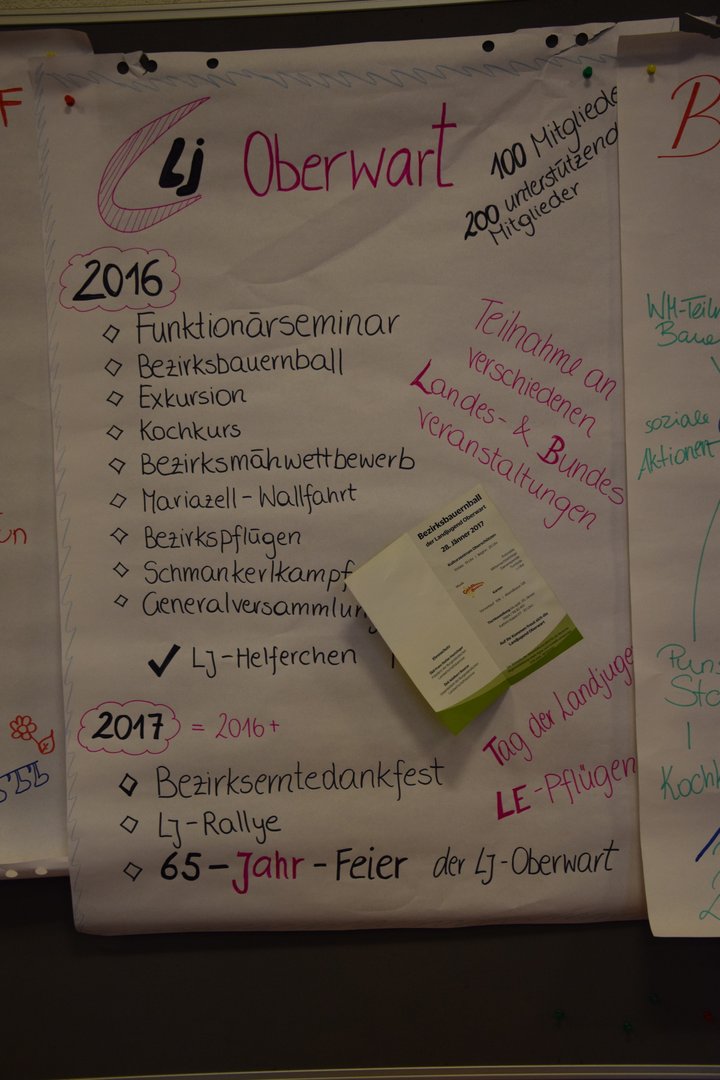 Lj Oberwart
100 Mitgliede
200 unterstützend
Mitglieder
2016
Funktionärseminar
Bezirksbauernball
Exkursion
Kochkurs
Bezirksmähwettbewerb
Mariazell-Wallfahrt
Bezirkspflügen
Schmankerlkampf
Generalversammlun
✓ Lj-Helferchen
Teilnahme an
verschiedenen
Landes- & Bundes
veranstaltungen
Bezirksbauernball
der Landjugend Oberwart
28. Jänner 2017
2017 = 2016+
Bezirkserntedankfest
Lj-Rallye
65-Jahr-Feier der Lj-Oberwart
Tag der Landjuge
LE-Pflügen
F
B
WM-Teil
Baue
soziale
Aktionen
Kochk